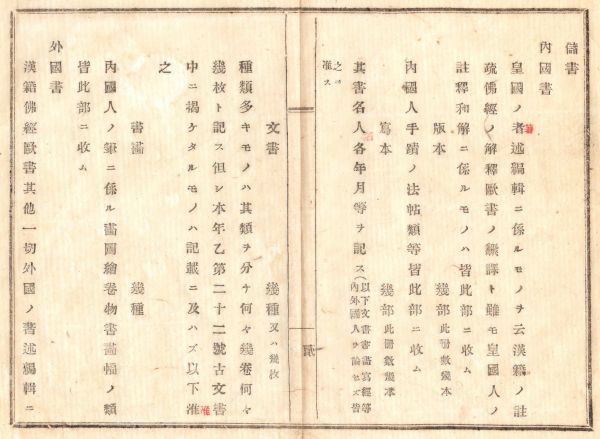 儲書
內國書
皇國ノ者述編輯ニ係ルモノヲ云漢籍ノ註
疏佛經ノ解釋歐書ノ飜譯ト雖モ皇國人ノ
註釋和解ニ係ルモノハ皆此部ニ收ム
版本 幾部此册數幾本
內國人手蹟ノ法帖類等皆此部ニ收ム
寫本 幾部此册數幾本
其書名人各年月等ヲ記ス(以下文書書畵寫經等內外國人ヲ論セス皆
之ニ准ス
文書 幾種又ハ幾枚
種類多キモノハ其類ヲ分テ何々幾卷何々
幾枚ト記ス但シ本年乙第二十二號古文書
中ニ揭ケタルモノハ記載ニ及ハズ以下准
之
書畵 幾種
內國人ノ筆ニ係ル畵圖繪卷物書畵幅ノ類
皆此部ニ收ム
外國書
漢籍佛經歐書其他一切外國ノ著述編輯ニ